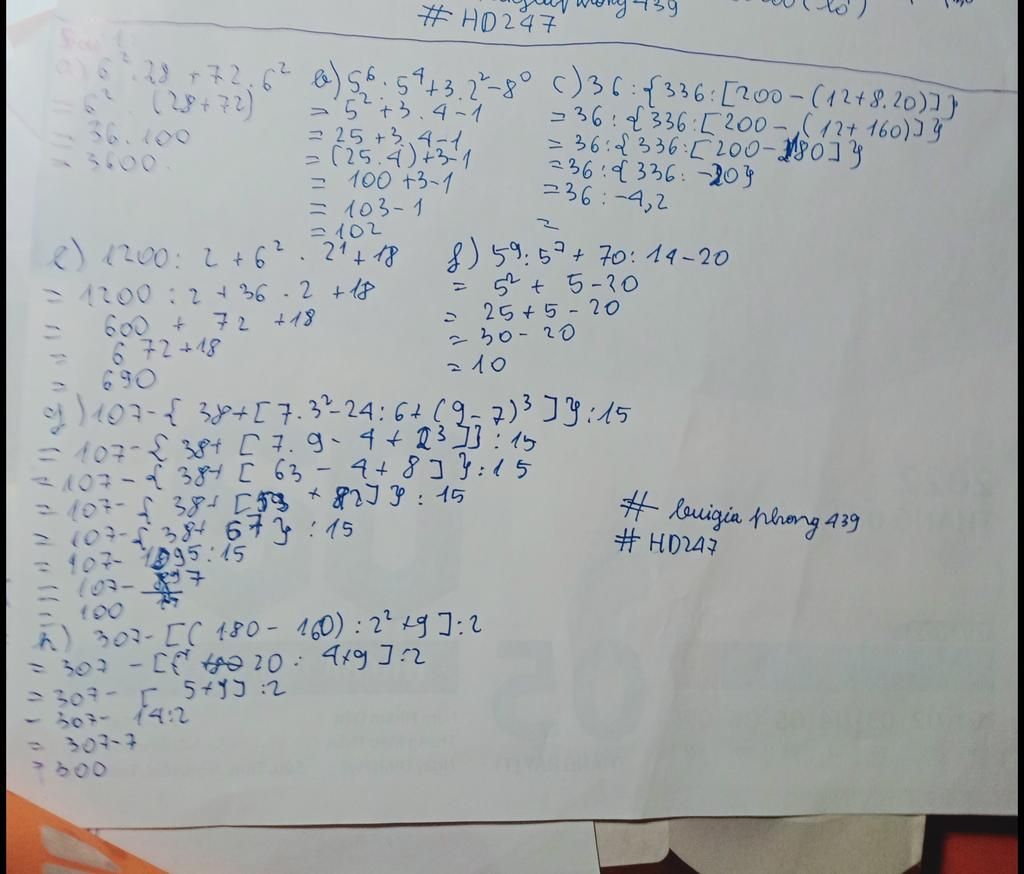 # HD247
a) 6² . 28 + 72 . 6²
= 6² . (28+72)
= 36 . 100
= 3600
b) 5⁶ : 5⁴ + 3 . 2² - 8⁰
= 5² + 3 . 4 - 1
= 25 + 3 . 4 - 1
= (25 . 4) + 3 - 1
= 100 + 3 - 1
= 103 - 1
= 102
c) 36 : {336 : [200 - (12 + 8.20)]}
= 36 : {336 : [200 - (12 + 160)]}
= 36 : {336 : [200 - 180]}
= 36 : {336 : -20}
= 36 : -4,2
=
e) 1200 : 2 + 6² . 2¹ + 18
= 1200 : 2 + 36 . 2 + 18
= 600 + 72 + 18
= 672 + 18
= 690
f) 5⁹ : 5⁷ + 70 : 14 - 20
= 5² + 5 - 20
= 25 + 5 - 20
= 30 - 20
= 10
g) 107 - { 38 + [ 7 . 3² - 24 : 6 + (9 - 7)³ ] } : 15
= 107 - { 38 + [ 7 . 9 - 4 + 2³ ] } : 15
= 107 - { 38 + [ 63 - 4 + 8 ] } : 15
= 107 - { 38 + [ 59 + 8 ] } : 15
= 107 - { 38 + 67 } : 15
= 107 - 1095 : 15
= 107 - 7
= 100
h) 307 - [( 180 - 160) : 2² + 9 ] : 2
= 307 - [ 20 : 4 + 9 ] : 2
= 307 - [ 5 + 9 ] : 2
= 307 - 14 : 2
= 307 - 7
= 300
# buigia phong 439
# HD247